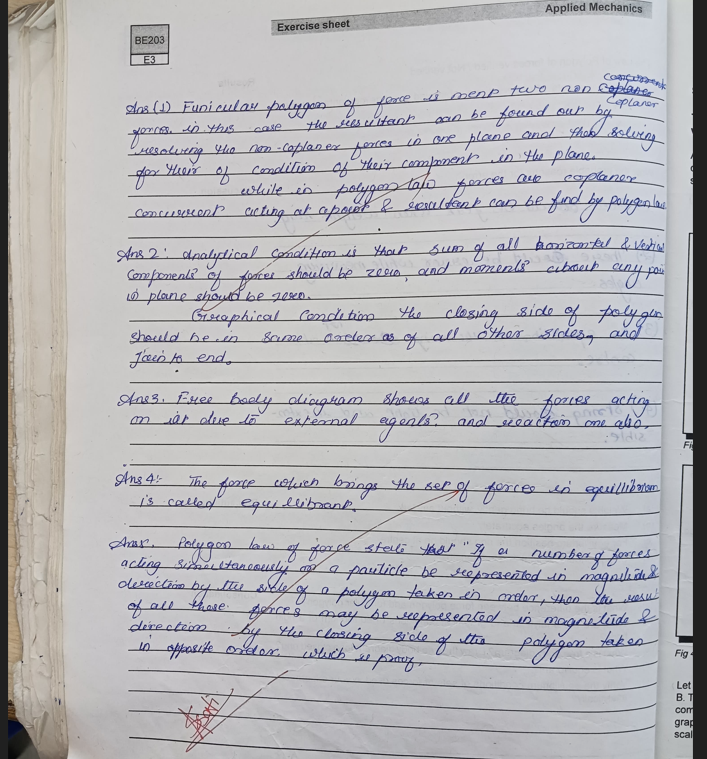 Applied Mechanics
Exercise sheet
BE203
E3
concurrent
Ans (1) Funicular polygon of force is ment two non coplaner
Coplaner
forces. in this case the resultant can be found out by
resolving the non-coplaner forces in one plane and then solving
for their of condition of their component in the plane.
while in polygon law forces are coplaner
concurrent acting at a point & resultant can be find by polygon law
Ans 2: Analytical condition is that sum of all horizontal & vertical
components of forces should be zero, and moments about any poin
in plane should be zero.
Graphical condition the closing side of polygon
should be in same order as of all other sides, and
join to end.
Ans 3. Free body diagram shows all the forces acting
on it due to external agents, and reaction one also.
Ans 4:- The force which brings the set of forces in equillibrium
is called equillibrant.
Ans. Polygon law of force state that "If a number of forces
acting simultaneously on a particle be represented in magnitude &
direction by the side of a polygon taken in order, then the resul
of all those forces may be represented in magnetude &
direction by the closing side of the polygon taken
in opposite order. which is proof.
Fig
Fig
Let
B. T
com
grap
scal